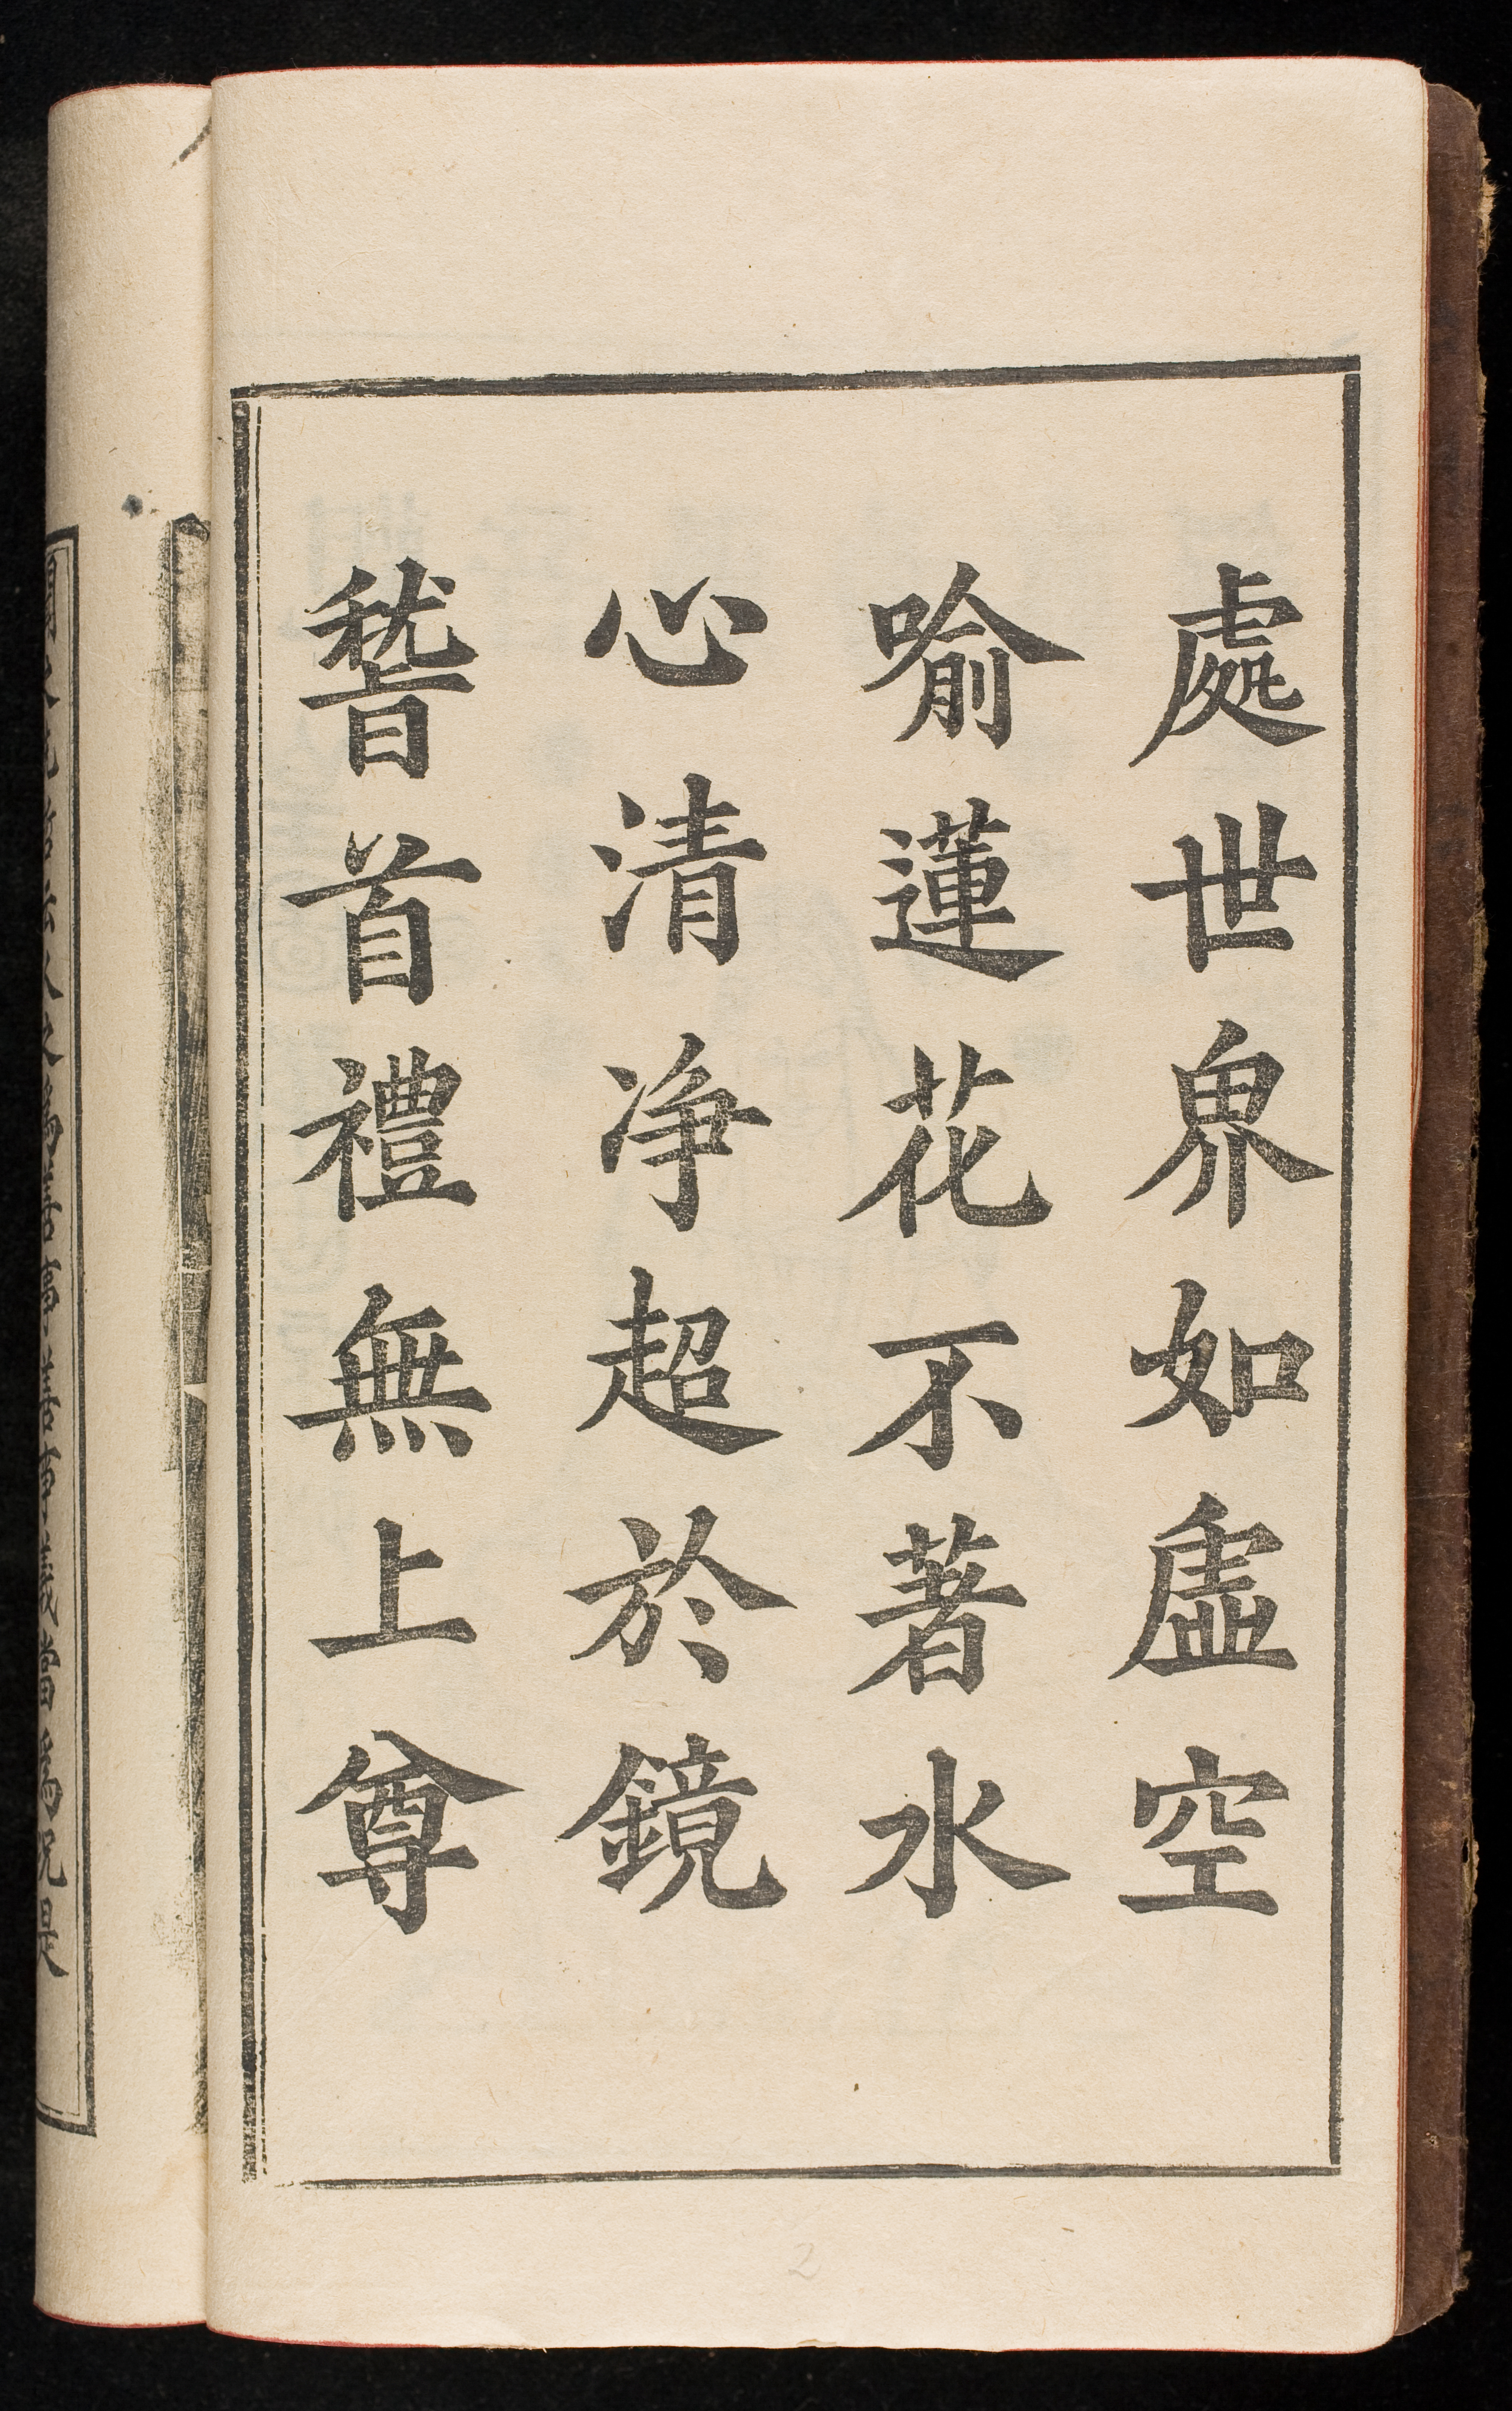 處世界如虛空
喻蓮花不著水
心清净超於鏡
稽首禮無上尊
2